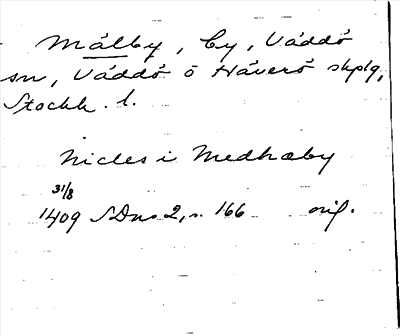 Målby, by, Väddö
sn, Väddö o Häverö skplg,
Stockh. l.
Nicles i Medhæby
31/8
1409 SDns 2, s. 166 orig.